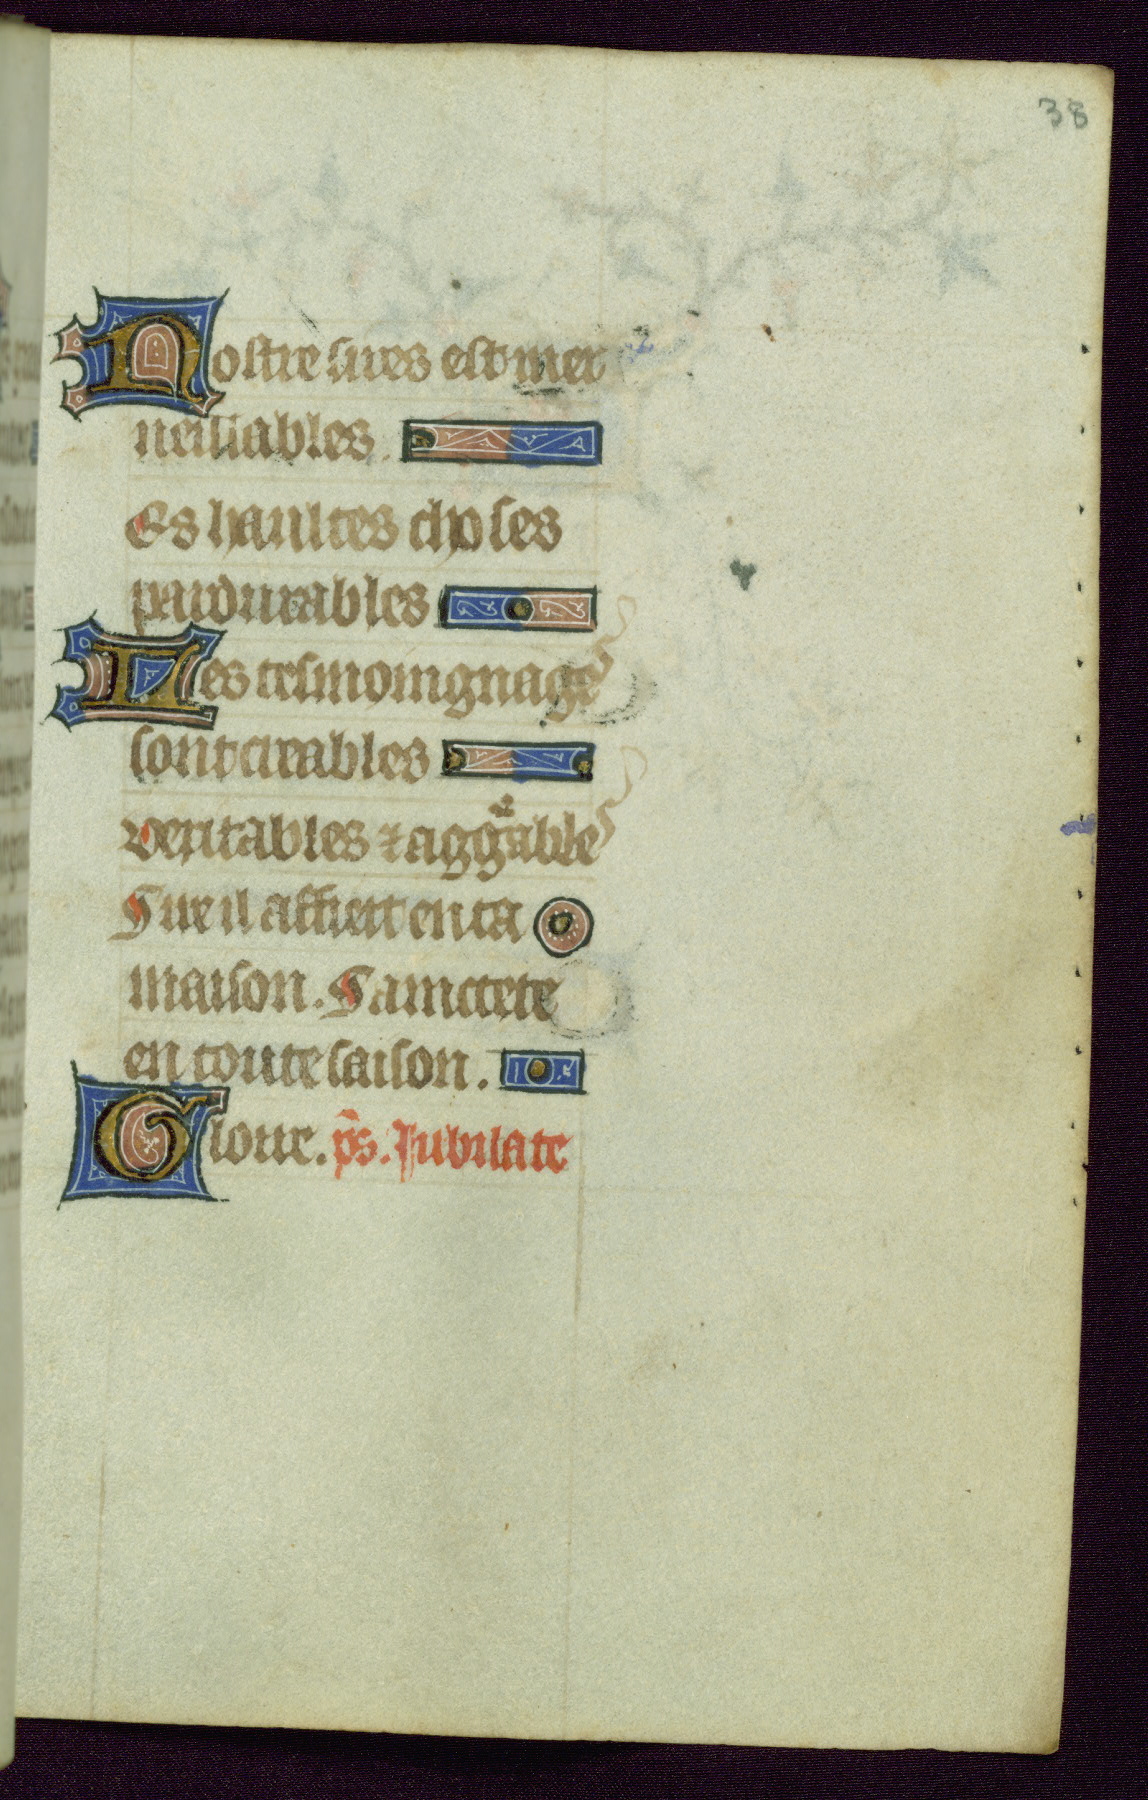 38
Nostre sires est mer
ueilliables.
Es haultes choses
pardurables
Les tesmoingnages
sont creables
veritables ⁊ aggͣables
Que il affiert en ta
maison. Sainctete
en toute saison.
Gloire. p̄s. Jubilate